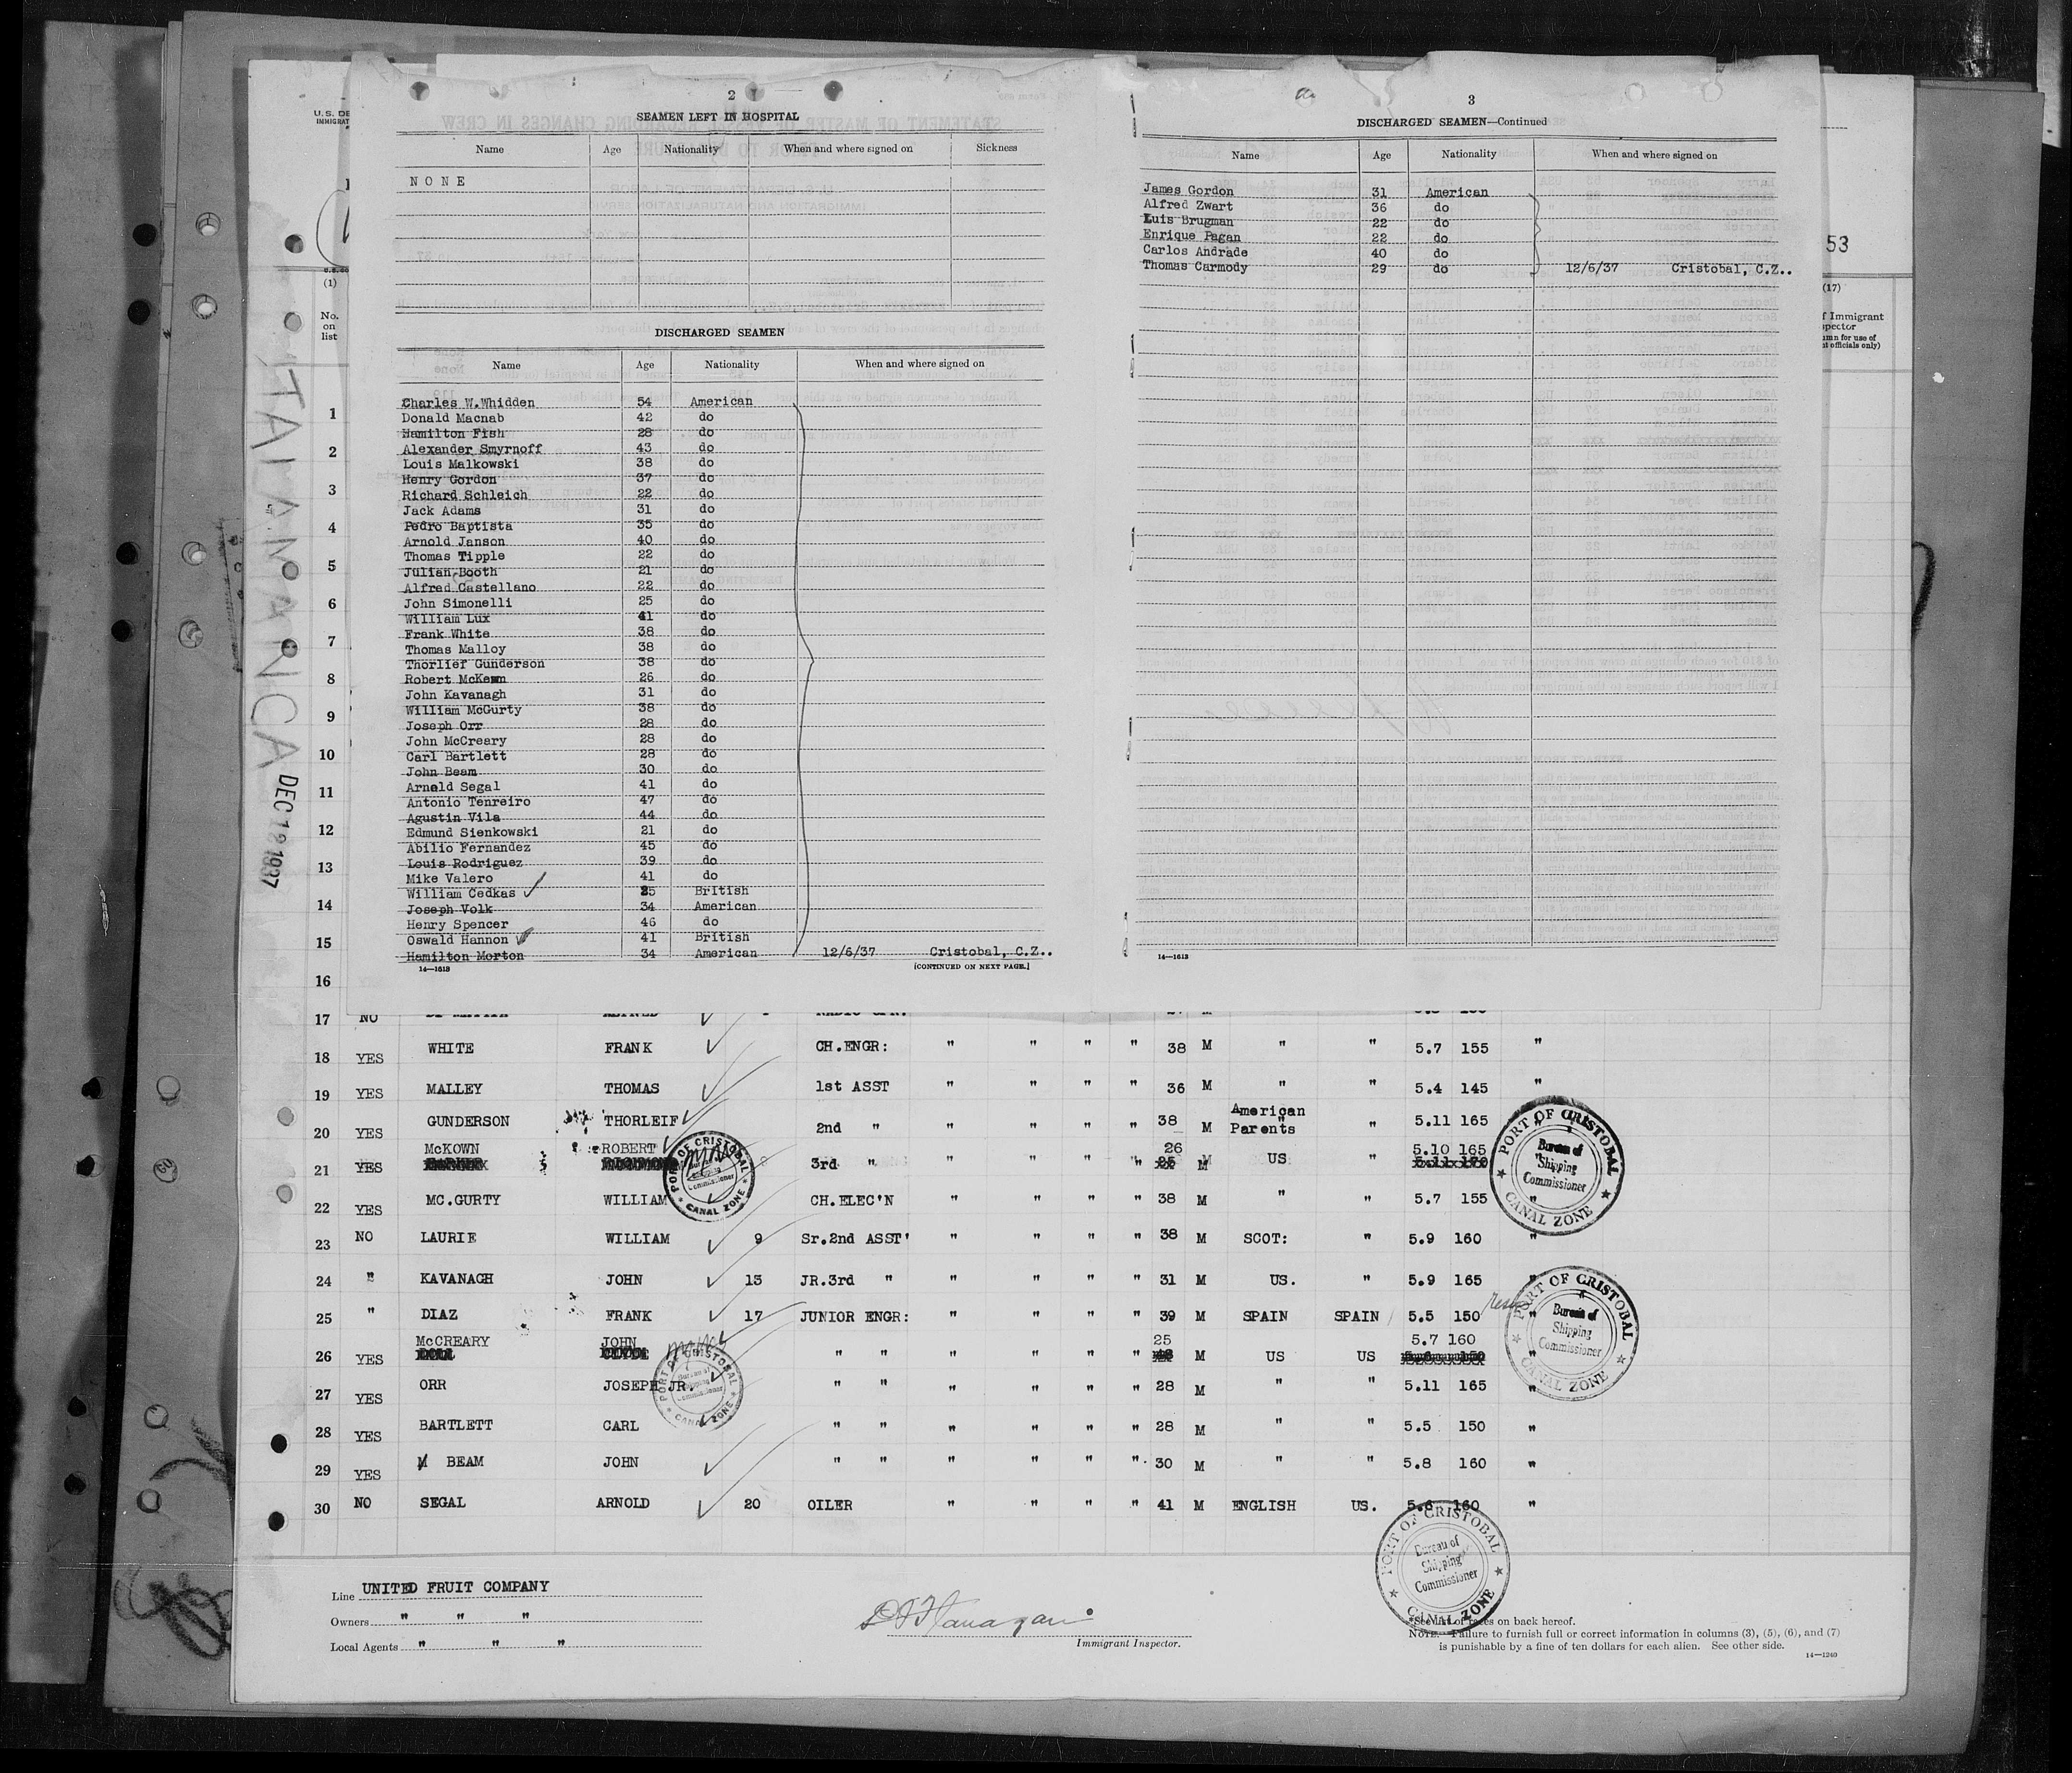 2
SEAMEN LEFT IN HOSPITAL
Name Age Nationality When and where signed on Sickness
NONE
DISCHARGED SEAMEN
Name Age Nationality When and where signed on
Charles W.Whidden 54 American
Donald Macnab 42 do
Hamilton Fish 28 do
Alexander Smyrnoff 43 do
Louis Malkowski 38 do
Henry Gordon 37 do
Richard Schleich 22 do
Jack Adams 31 do
Pedro Baptista 35 do
Arnold Janson 40 do
Thomas Tipple 22 do
Julian Booth 21 do
Alfred Castellano 22 do
John Simonelli 25 do
William Lux 41 do
Frank White 38 do
Thomas Malloy 38 do
Thorlief Gunderson 38 do
Robert McKown 26 do
John Kavanagh 31 do
William McGurty 38 do
Joseph Orr 28 do
John McCreary 28 do
Carl Bartlett 28 do
John Beam 30 do
Arnold Segal 41 do
Antonio Tenreiro 47 do
Agustin Vila 44 do
Edmund Sienkowski 21 do
Abilio Fernandez 45 do
Louis Rodriguez 39 do
Mike Valero 41 do
William Cedkas ✓ 25 British
Joseph Volk 34 American
Henry Spencer 46 do
Oswald Hannon ✓ 41 British
Hamilton Morton 34 American 12/6/37 Cristobal, C.Z..
14—1613 [CONTINUED ON NEXT PAGE.]
3
DISCHARGED SEAMEN—Continued
Name Age Nationality When and where signed on
James Gordon 31 American
Alfred Zwart 36 do
Luis Brugman 22 do
Enrique Pagan 22 do
Carlos Andrade 40 do
Thomas Carmody 29 do 12/6/37 Cristobal, C.Z..
14—1613
U.S. DE
IMMIGRAT
53
(1)
No.
on
list
(17)
f Immigrant
spector
TALAMANCA
DEC 12 1937
1
2
3
4
5
6
7
8
9
10
11
12
13
14
15
16
17 NO
18 YES WHITE FRANK CH.ENGR: " " " " 38 M " " 5.7 155 "
19 YES MALLEY THOMAS 1st ASST " " " " 36 M " " 5.4 145 "
20 YES GUNDERSON THORLEIF 2nd " " " " " 38 M American Parents " 5.11 165
McKOWN ROBERT 26 5.10 165
21 YES 3rd " " " " " M US "
22 YES MC.GURTY WILLIAM CH.ELEC'N " " " " 38 M " " 5.7 155 "
23 NO LAURIE WILLIAM 9 Sr.2nd ASST' " " " " 38 M SCOT: " 5.9 160 "
24 " KAVANAGH JOHN 13 JR.3rd " " " " " 31 M US. " 5.9 165 "
25 " DIAZ FRANK 17 JUNIOR ENGR: " " " " 39 M SPAIN SPAIN 5.5 150 "
McCREARY JOHN 25 5.7 160
26 YES " " " " " " M US US
27 YES ORR JOSEPH JR. " " " " " " 28 M " " 5.11 165 "
28 YES BARTLETT CARL " " " " " " 28 M " " 5.5 150 "
29 YES BEAM JOHN " " " " " " 30 M " " 5.8 160 "
30 NO SEGAL ARNOLD 20 OILER " " " " 41 M ENGLISH US. 5.6 160 "
PORT OF CRISTOBAL Bureau of Shipping Commissioner CANAL ZONE
PORT OF CRISTOBAL Bureau of Shipping Commissioner CANAL ZONE
PORT OF CRISTOBAL Bureau of Shipping Commissioner CANAL ZONE
PORT OF CRISTOBAL Bureau of Shipping Commissioner CANAL ZONE
PORT OF CRISTOBAL Bureau of Shipping Commissioner CANAL ZONE
Line UNITED FRUIT COMPANY
Owners " " "
Local Agents " " "
Flanagan
Immigrant Inspector.
on back hereof.
NOTE.—Failure to furnish full or correct information in columns (3), (5), (6), and (7)
is punishable by a fine of ten dollars for each alien. See other side.
14—1240